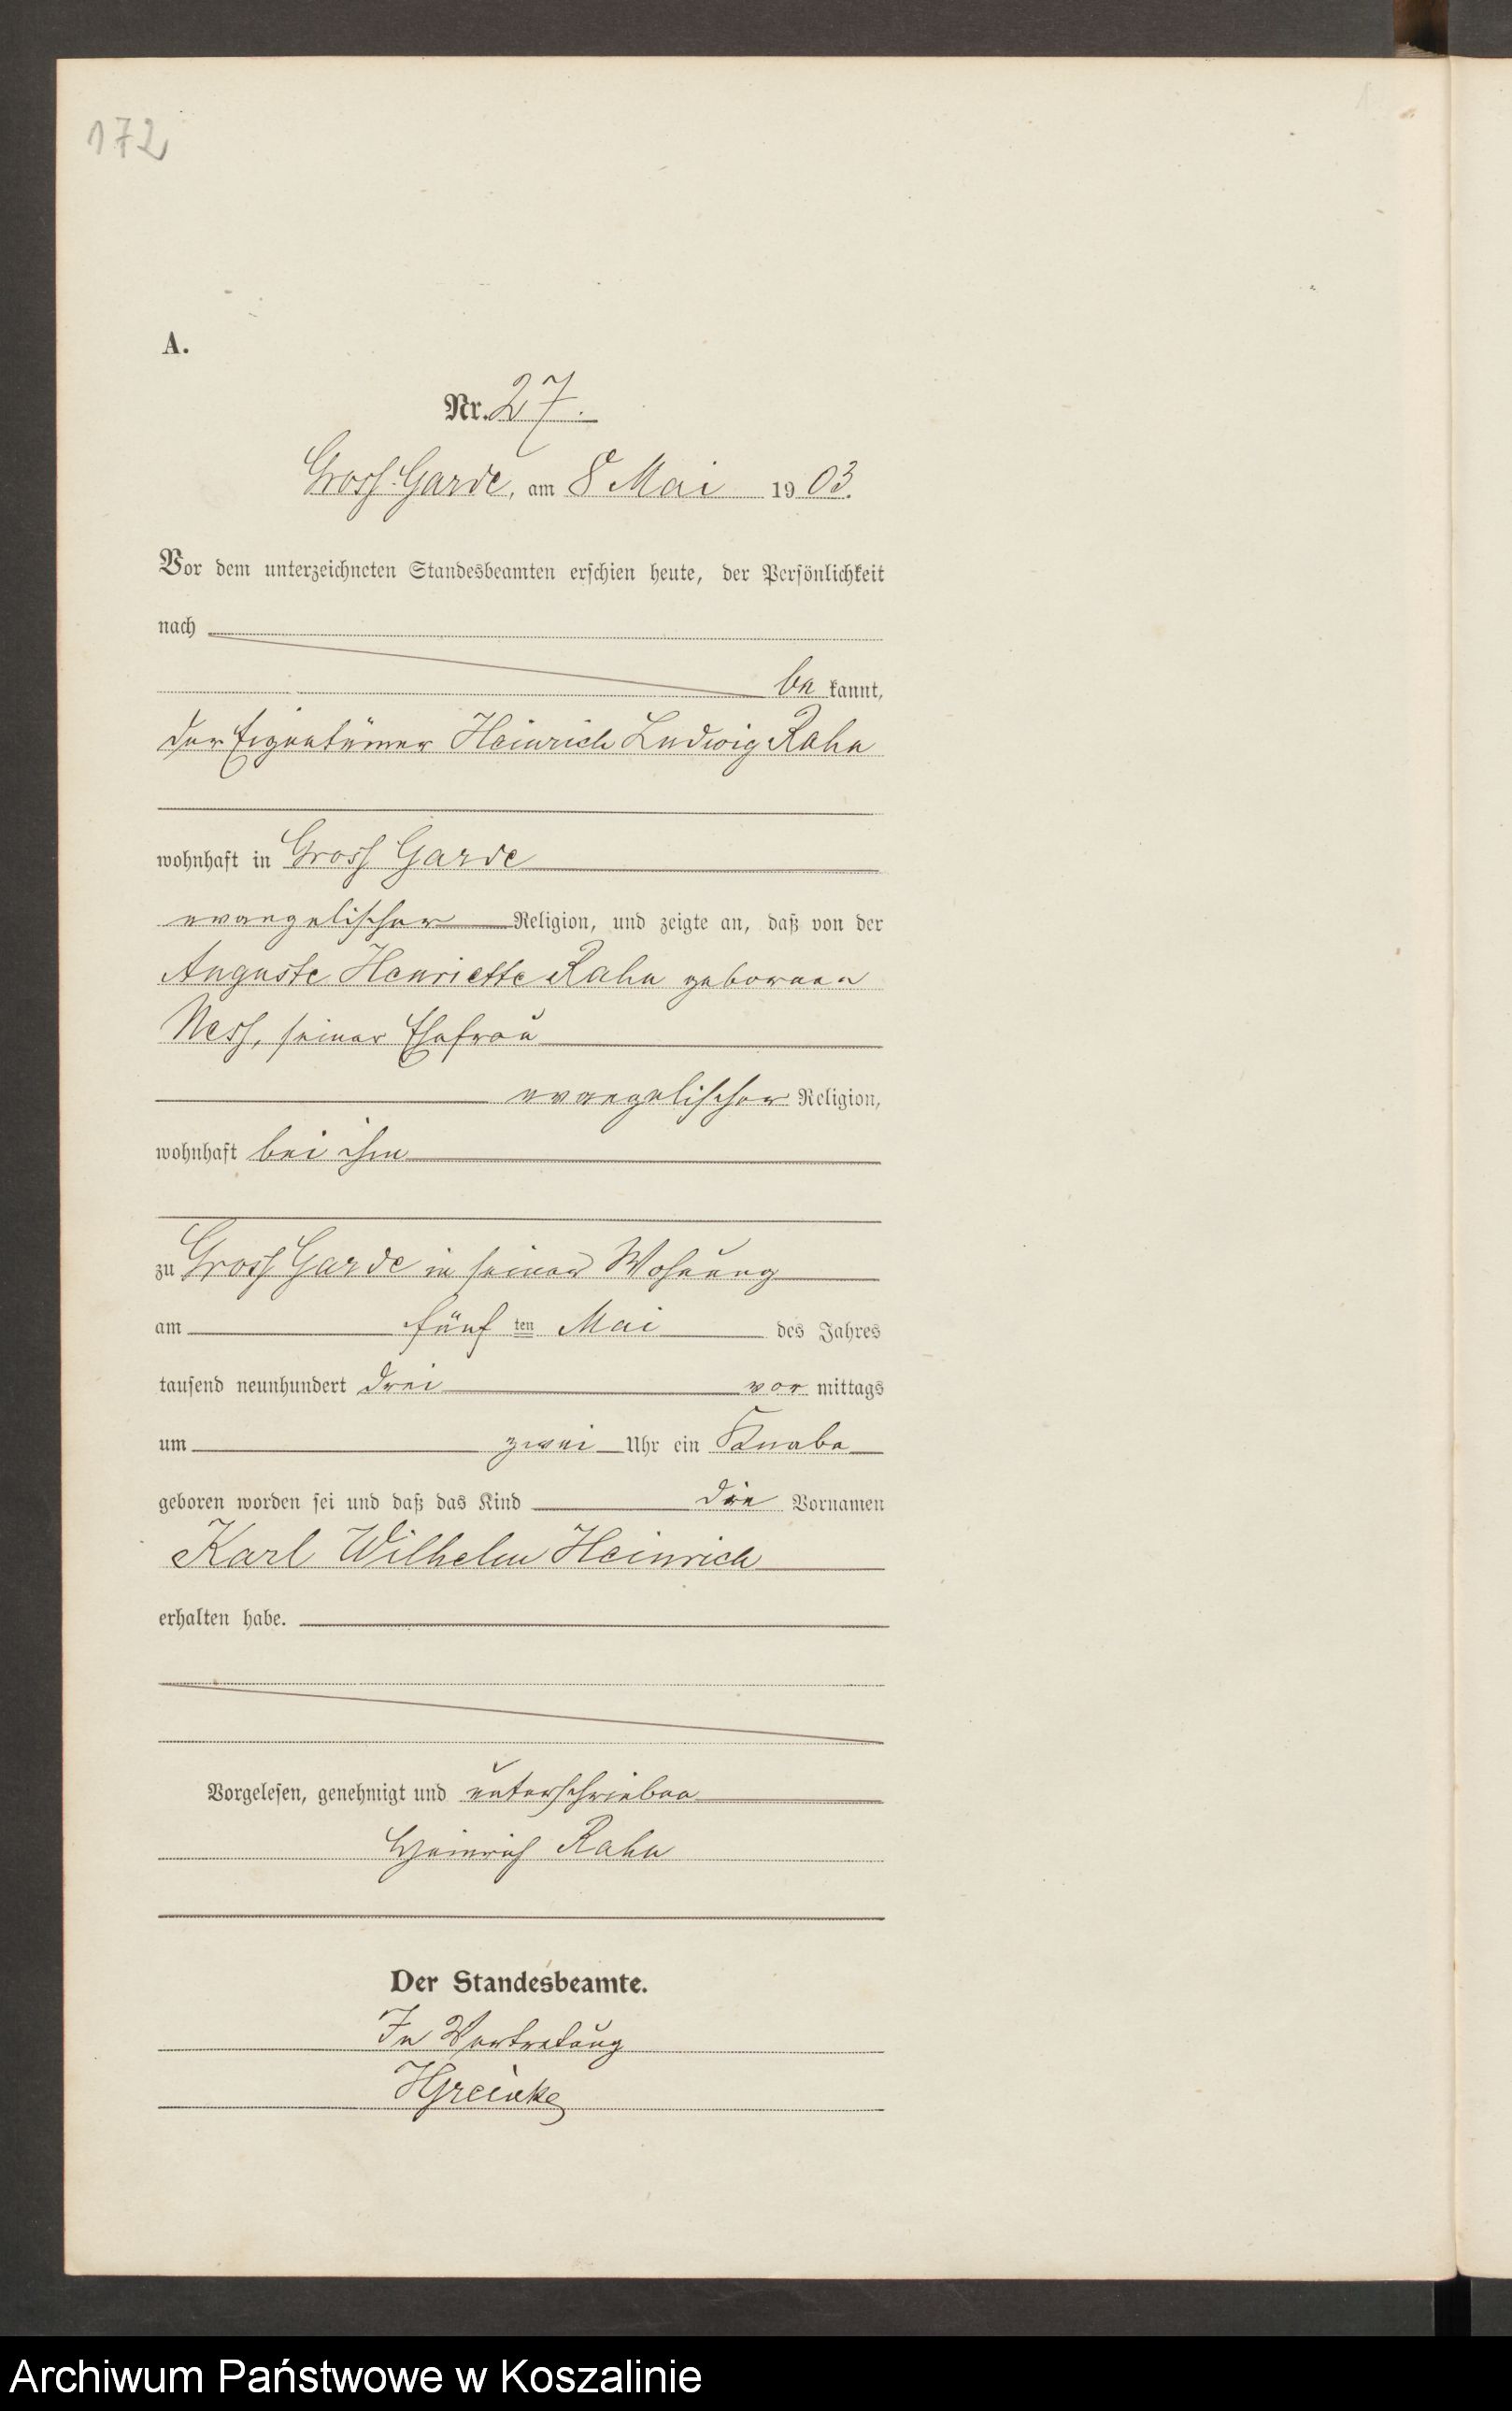 172
A.
Nr. 27.
Gross-Garde, am 8. Mai 1903.
Vor dem unterzeichneten Standesbeamten erschien heute, der Persönlichkeit
nach
be kannt,
der Eigentümer Heinrich Ludwig Rahn
wohnhaft in Gross Garde
evangelischer Religion, und zeigte an, daß von der
Auguste Henriette Rahn geborenen
Ness, seiner Ehefrau
evangelischer Religion,
wohnhaft bei ihm
zu Gross Garde in seiner Wohnung
am fünf ten Mai des Jahres
tausend neunhundert drei vor mittags
um zwei Uhr ein Knabe
geboren worden sei und daß das Kind die Vornamen
Karl Wilhelm Heinrich
erhalten habe.
Vorgelesen, genehmigt und unterschrieben
Heinrich Rahn
Der Standesbeamte.
In Vertretung
HGreinke
Archiwum Państwowe w Koszalinie